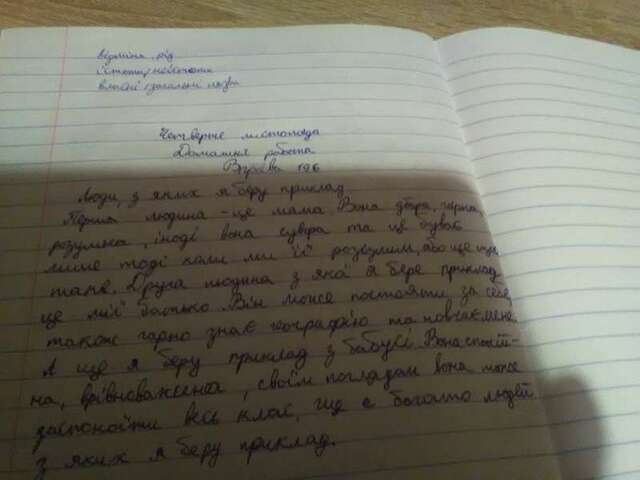 відміна, рід
істоти, неістоти
власні і загальні назви
Четверте листопада
Домашня робота
Вправа 196
Люди, з яких я беру приклад.
Перша людина - це мама. Вона добра, гарна,
розумна, іноді вона сувора та це буває
лише тоді коли ми її розізлим, або ще щось
таке. Друга людина з якої я бере приклад
це мій батько. Він може постояти за себе
також гарно знає географію та навчає мене.
А ще я беру приклад з бабусі. Вона спокій-
на, врівноважена, своїм поглядом вона може
заспокоїти весь клас, ще є богато людей
з яких я беру приклад.